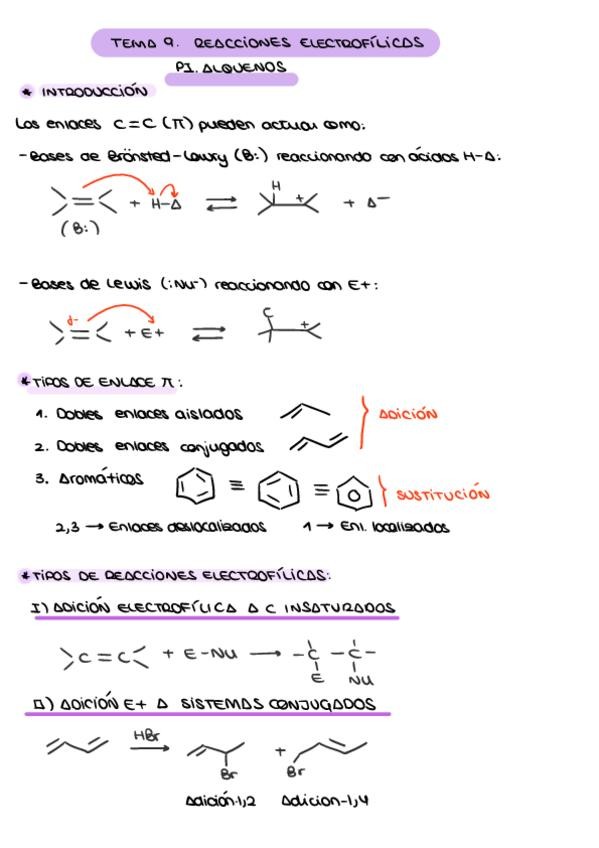 TEMA 9. REACCIONES ELECTROFÍLICAS
P1. ALQUENOS
* INTRODUCCIÓN
Los enlaces C=C (π) pueden actuar como:
- Bases de Brönsted-Lowry (B:) reaccionando con ácidos H-A:
+ H-A ⇌ H + + A⁻
(B:)
- Bases de Lewis (:Nu⁻) reaccionando con E+:
d- + E+ ⇌ C +
* TIPOS DE ENLACE π:
1. Dobles enlaces aislados
ADICIÓN
2. Dobles enlaces conjugados
3. Aromáticos ≡ ≡ SUSTITUCIÓN
2,3 → Enlaces deslocalizados 1 → Enl. localizados
* TIPOS DE REACCIONES ELECTROFÍLICAS:
I) ADICIÓN ELECTROFÍLICA A C INSATURADOS
C=C + E-NU → -C-C-
E NU
II) ADICIÓN E+ A SISTEMAS CONJUGADOS
HBr → +
Br Br
Adición-1,2 Adicion-1,4